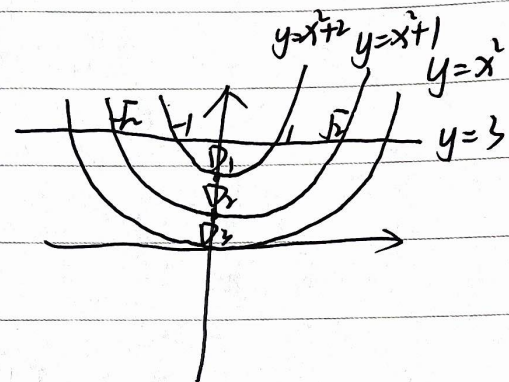 y=x²+2 y=x²+1 y=x²
-√2 -1 1 √2 y=3
D₁
D₂
D₃